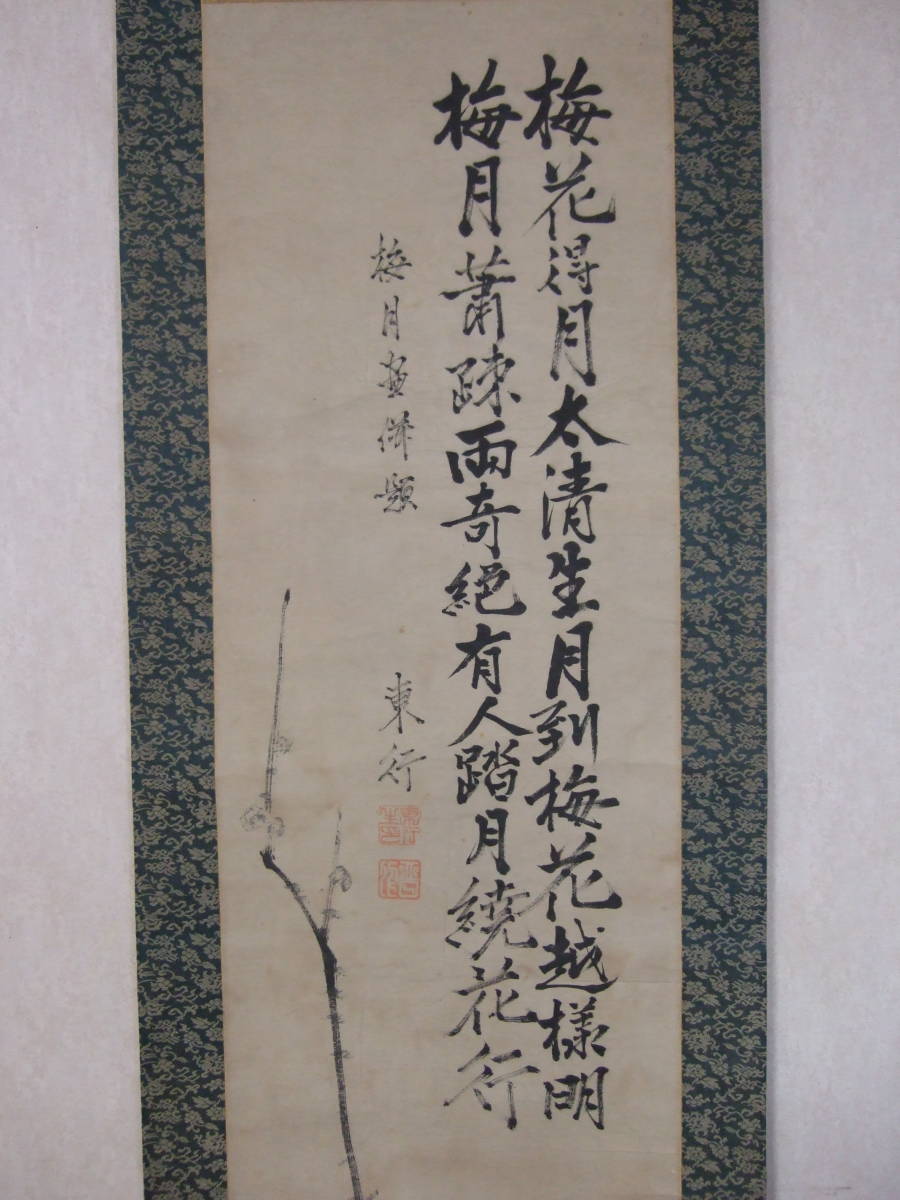 梅花得月太清生月到梅花越様明
梅月蕭疎兩奇絕有人踏月繞花行
梅月畫併題
東行
東行